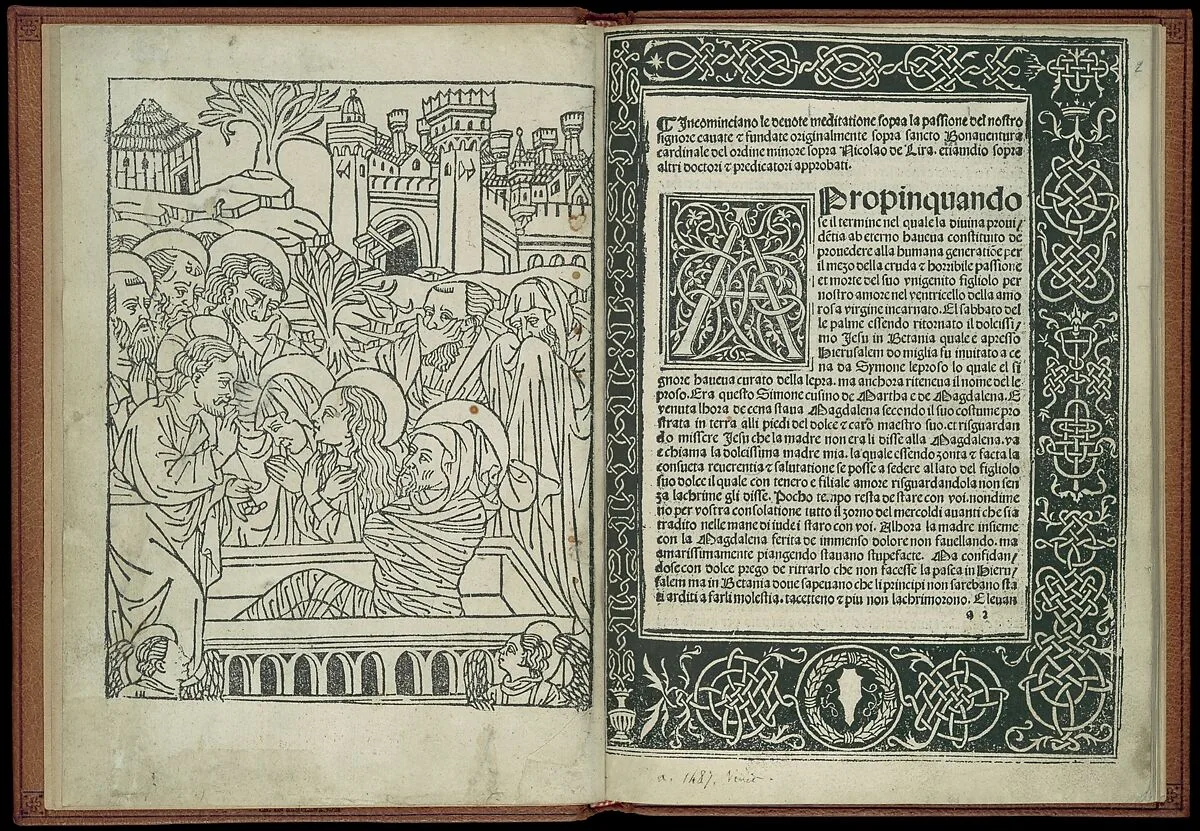 Incominciano le deuote meditatione sopra la passione del nostro
signore cauate ⁊ fundate originalmente sopra sancto Bonauentura
cardinale del ordine minore sopra Nicolao de Lira. etiamdio sopra
altri doctori ⁊ predicatori approbati.
Propinquando
se il termine nel quale la diuina proui/
dētia ab eterno haueua constituito de
prouedere alla humana generatiōe per
il mezo della cruda ⁊ horribile passione
et morte del suo vnigenito figliolo per
nostro amore nel ventricello della amo
rosa virgine incarnato. El sabbato del
le palme essendo ritornato il dolcissi/
mo Jesu in Betania quale e apresso
Hierusalem do miglia fu inuitato a ce
na da Symone leproso lo quale el si
gnore haueua curato della lepra. ma anchora riteneua il nome del le
proso. Era questo Simone cusino de Martha e de Magdalena. E
venuta lhora de cena staua Magdalena secondo il suo costume pro
strata in terra alli piedi del dolce ⁊ caro maestro suo. et risguardan
do missere Jesu che la madre non era li disse alla Magdalena. va
e chiama la dolcissima madre mia. la quale essendo zonta ⁊ facta la
consueta reuerentia ⁊ salutatione se posse a sedere al lato del figliolo
suo dolce il quale con tenero e filiale amore risguardandola non sen
za lachrime gli disse. Pocho tempo resta de stare con voi. nondime
no per vostra consolatione tutto il zorno del mercoldi auanti che sia
tradito nelle mane di iudei staro con voi. Alhora la madre insieme
con la Magdalena ferita de immenso dolore non fauellando. ma
amarissimamente piangendo stauano stupefacte. Ma confidan/
dose con dolce prego de ritrarlo che non facesse la pasca in Hieru/
salem ma in Betania doue sapeuano che li principi non sarebano sta
ti arditi a farli molestia. tacetteno ⁊ piu non lachrimorono. Eleuan
a 2
a. 1487. Venie.
2